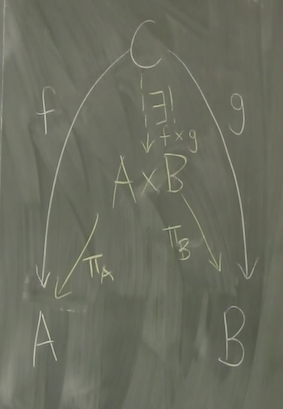 C
f ∃! g
f×g
A×B
π_A π_B
A B